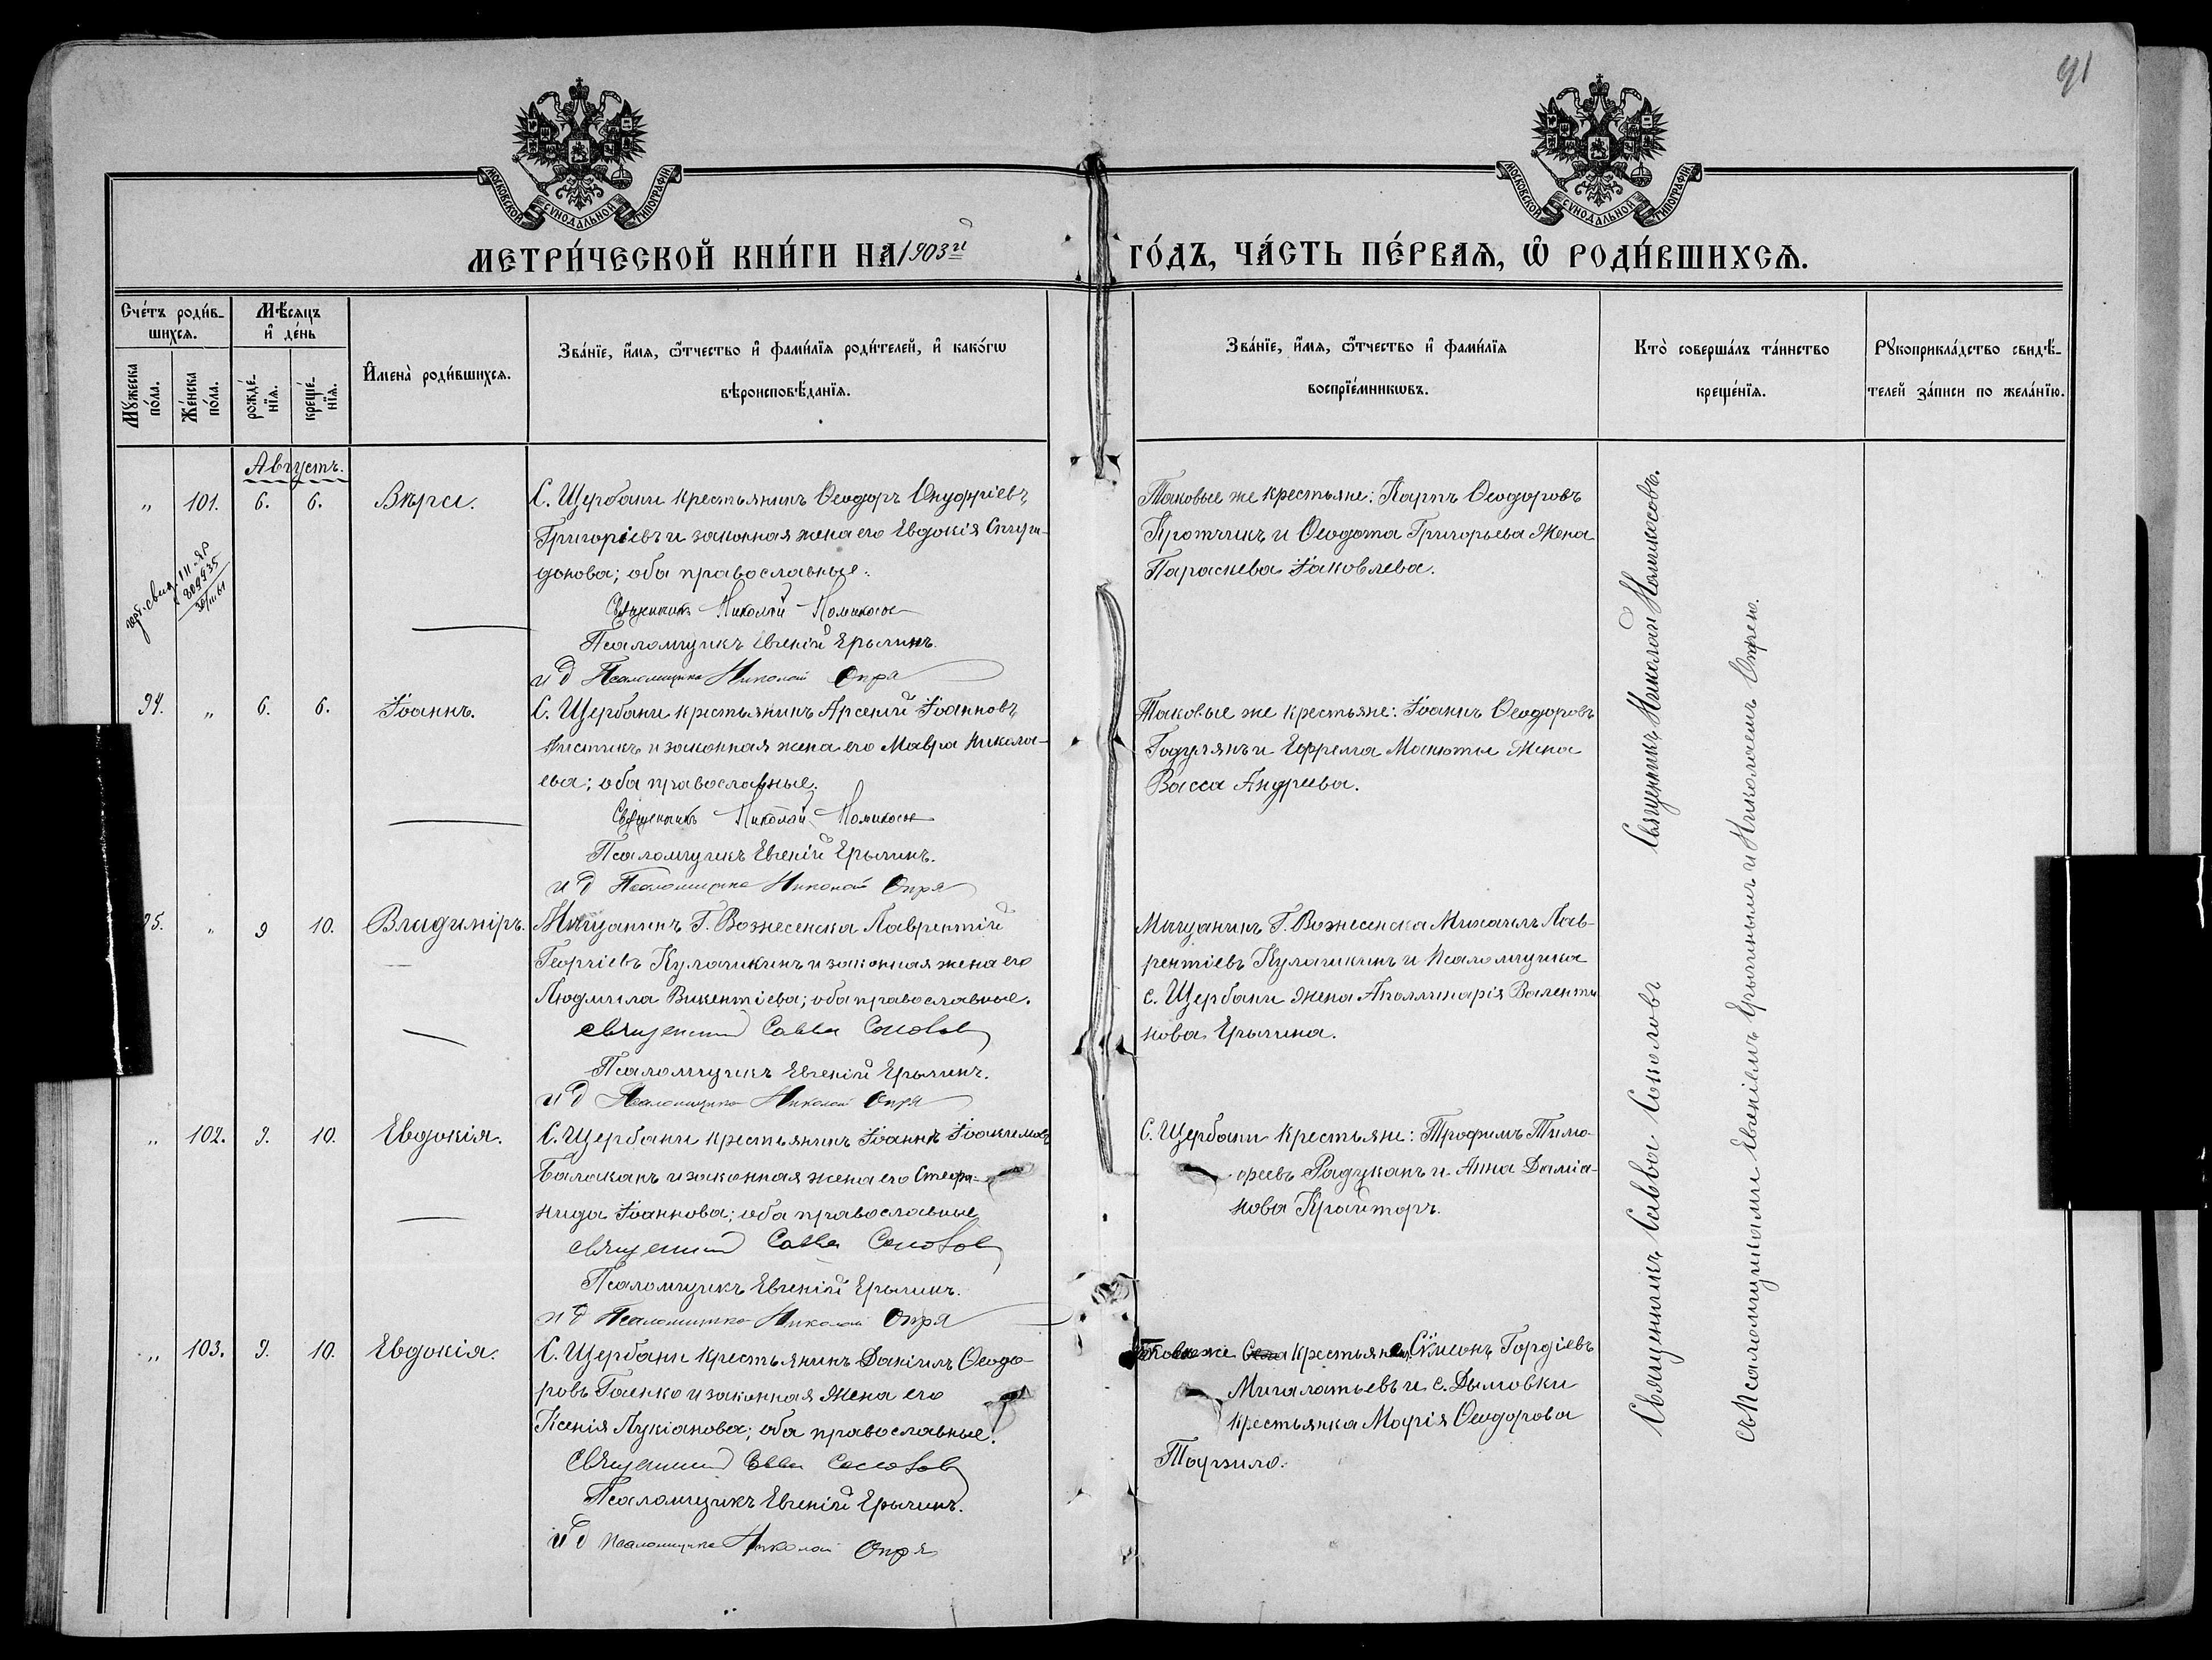 91
МОСКОВСКОЙ СѴНОДАЛЬНОЙ ТИПОГРАФІИ
МОСКОВСКОЙ СѴНОДАЛЬНОЙ ТИПОГРАФІИ
МЕТРИ́ЧЕСКОЙ КНИ́ГИ НА 1903й
ГО́ДЪ, ЧА́СТЬ ПЕ́РВАЯ, Ѡ РОДИ́ВШИХСЯ.
Сче́тъ роди́в-
шихся.
Мѣ́сяцъ
и де́нь
Му́жеска
по́ла.
Же́нска
по́ла.
рожде́-
нїя.
креще́-
нїя.
И҆мена̀ роди́вшихся.
Зва́нїе, и҆́мя, ѻ҆́тчество и҆ фами́лїя роди́телей, и҆ како́гѡ
вѣроисповѣ́данїя.
Зва́нїе, и҆́мя, ѻ҆́тчество и҆ фами́лїя
воспрїе́мникѡвъ.
Кто̀ соверша́лъ та́инство
креще́нїя.
Рꙋкоприкла́дство свидѣ́-
телей за́писи по жела́нїю.
Августъ.
„ 101. 6. 6. Вѣра. С. Щербани крестьянинъ Ѳеодоръ Онуфріевъ
Григоріевъ и законная жена его Евдокія Спири-
донова; оба православные.
Священникъ Николай
Псаломщикъ Евгеній Ерычинъ.
и д Псаломщика Николай Опря
Таковые же крестьяне: Карпъ Ѳеодоровъ
и Ѳеодота Григорьева жена
Параскева Іаковлева.
III-ЯР
809935
94. „ 6. 6. Іоаннъ. С. Щербани крестьянинъ Арсеній Іоанновъ
и законная жена его Мавра Никола-
ева; оба православные.
Священникъ Николай
Псаломщикъ Евгеній Ерычинъ.
и д Псаломщика Николай Опря
Таковые же крестьяне: Іоаннъ Ѳеодоровъ
Годулянъ и Ефрема Манюты жена
Васса Андреева.
95. „ 9 10. Владиміръ. Мѣщанинъ Г. Вознесенска Лаврентій
Георгіевъ Кулачикинъ и законная жена его
Людмила Викентіева; оба православные.
Священникъ Савва Соколовъ
Псаломщикъ Евгеній Ерычинъ.
и д Псаломщика Николай Опря
Мѣщанинъ Г. Вознесенска Михаилъ Лав-
рентіевъ Кулачикинъ и псаломщика
с. Щербани жена Аполлинарія Валенти
нова Ерычина.
„ 102. 9. 10. Евдокія. С. Щербани крестьянинъ Іоаннъ Іоакимовъ
Балаканъ и законная жена его Стефа-
нида Іоаннова; оба православные
Священникъ Савва Соколовъ
Псаломщикъ Евгеній Ерычинъ.
и д Псаломщика Николай Опря
С. Щербани крестьяне: Трофимъ Тимо-
ѳеевъ Радуканъ и Анна Даміа-
нова Крайторъ.
„ 103. 9. 10. Евдокія. С. Щербани крестьянинъ Даніилъ Ѳеодо-
ровъ Гаенко и законная жена его
Ксенія Лукіанова; оба православные.
Священникъ Савва Соколовъ
Псаломщикъ Евгеній Ерычинъ.
и д Псаломщика Николай Опря
же крестьяне Сѵмеонъ Гордіевъ
Мигалатьевъ и с. Дымовки
крестьянка Марія Ѳеодорова
Священникъ Николай
Священникъ Савва Соколовъ
съ Псаломщиками Евгеніемъ Ерычинымъ и Николаемъ Опрею.